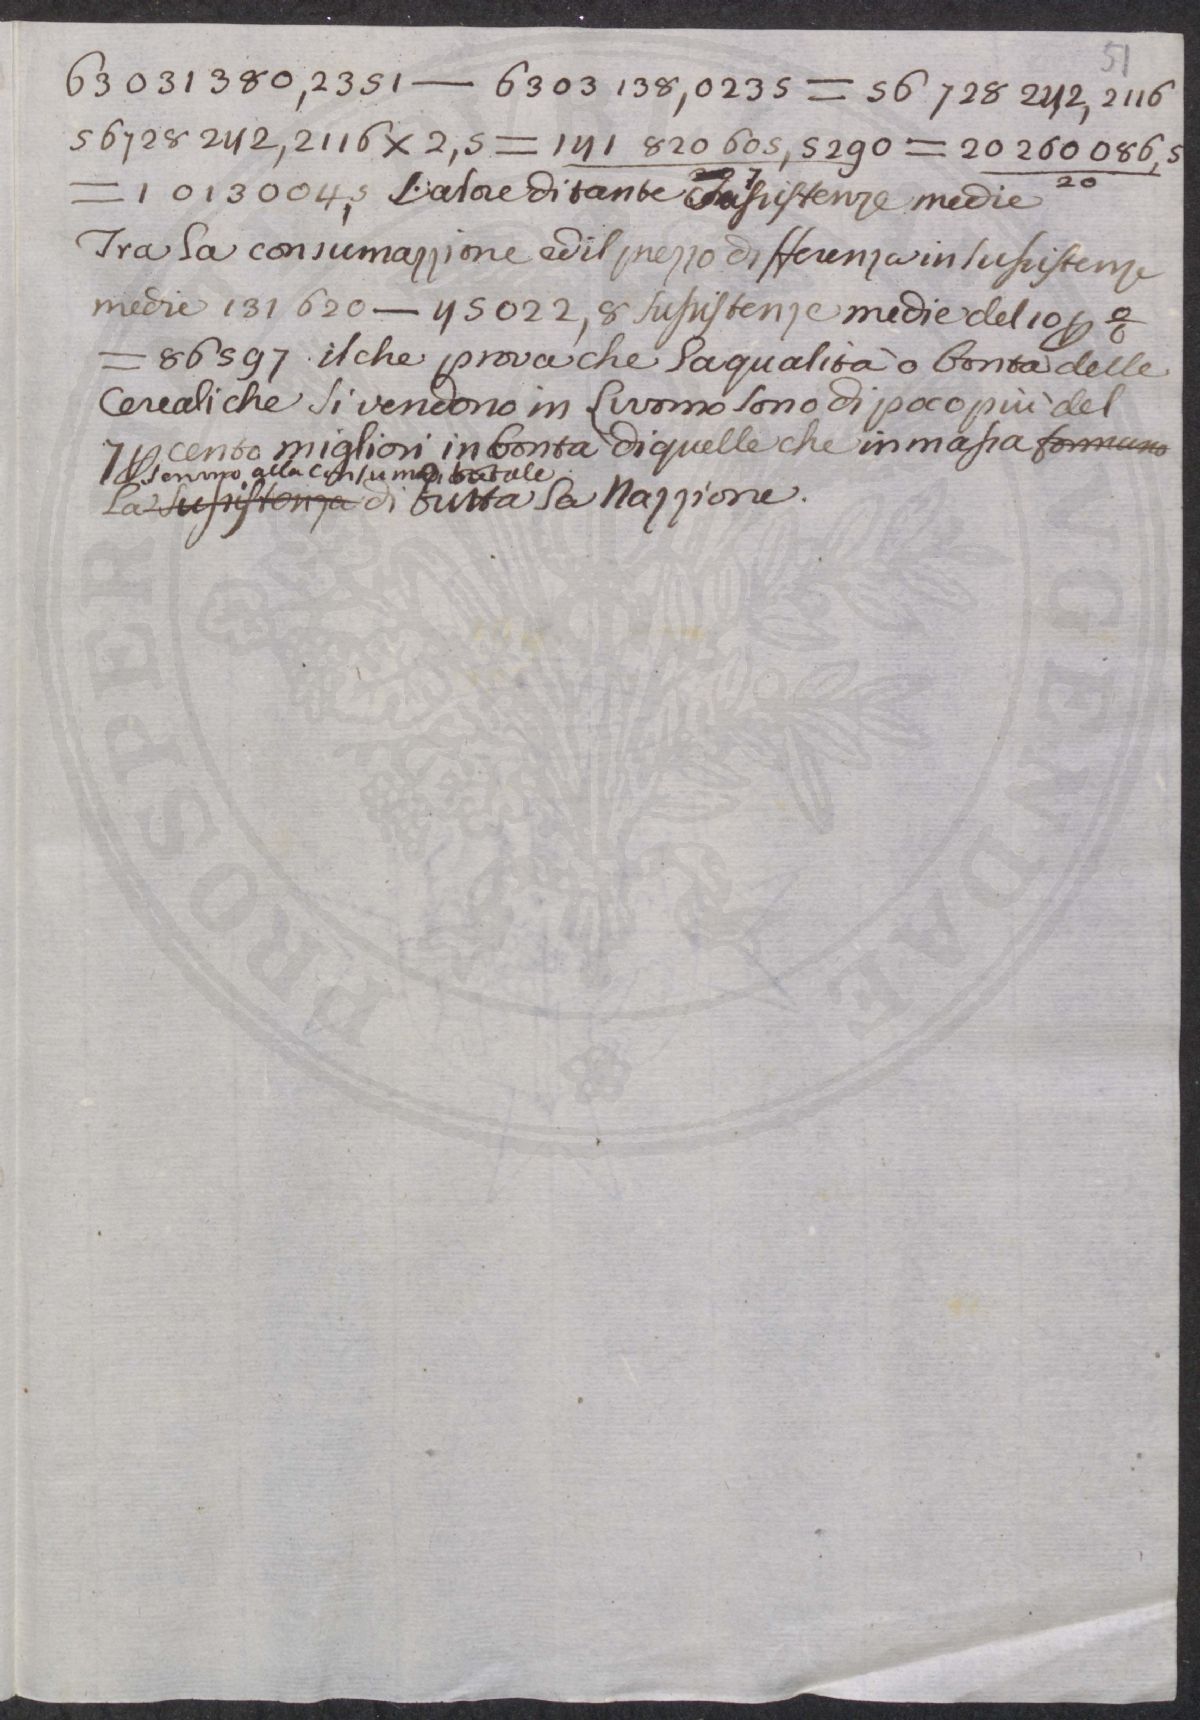 51
63 031 380,2351 — 6303 138,0235 = 56 728 242, 2116
56728 242,2116 x 2,5 = 141 820 605, 5290 = 20 260 086,5
7 20
= 1 013 004,5 Valore di tante Susistenze medie
Tra la consumazzione ed il prezzo differenza in susistenze
medie 131 620 — 45022, 8 susistenze medie del 10 p %
= 86597 il che prova che la qualità o bontà delle
Cereali che si vendono in Livorno sono di poco più del
7 p cento migliori in bontà di quelle che in massa formano
servono alla Consumaz totale
la susistenza di tutta la Nazzione.
PROSPER
GENDAE